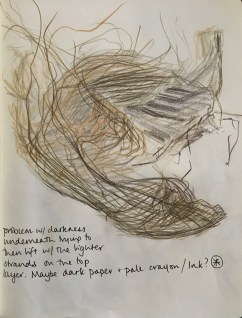 problem w/ darkness
underneath trying to
then lift w/ the lighter
strands on the top
layer. Maybe dark paper + pale crayon/Ink?